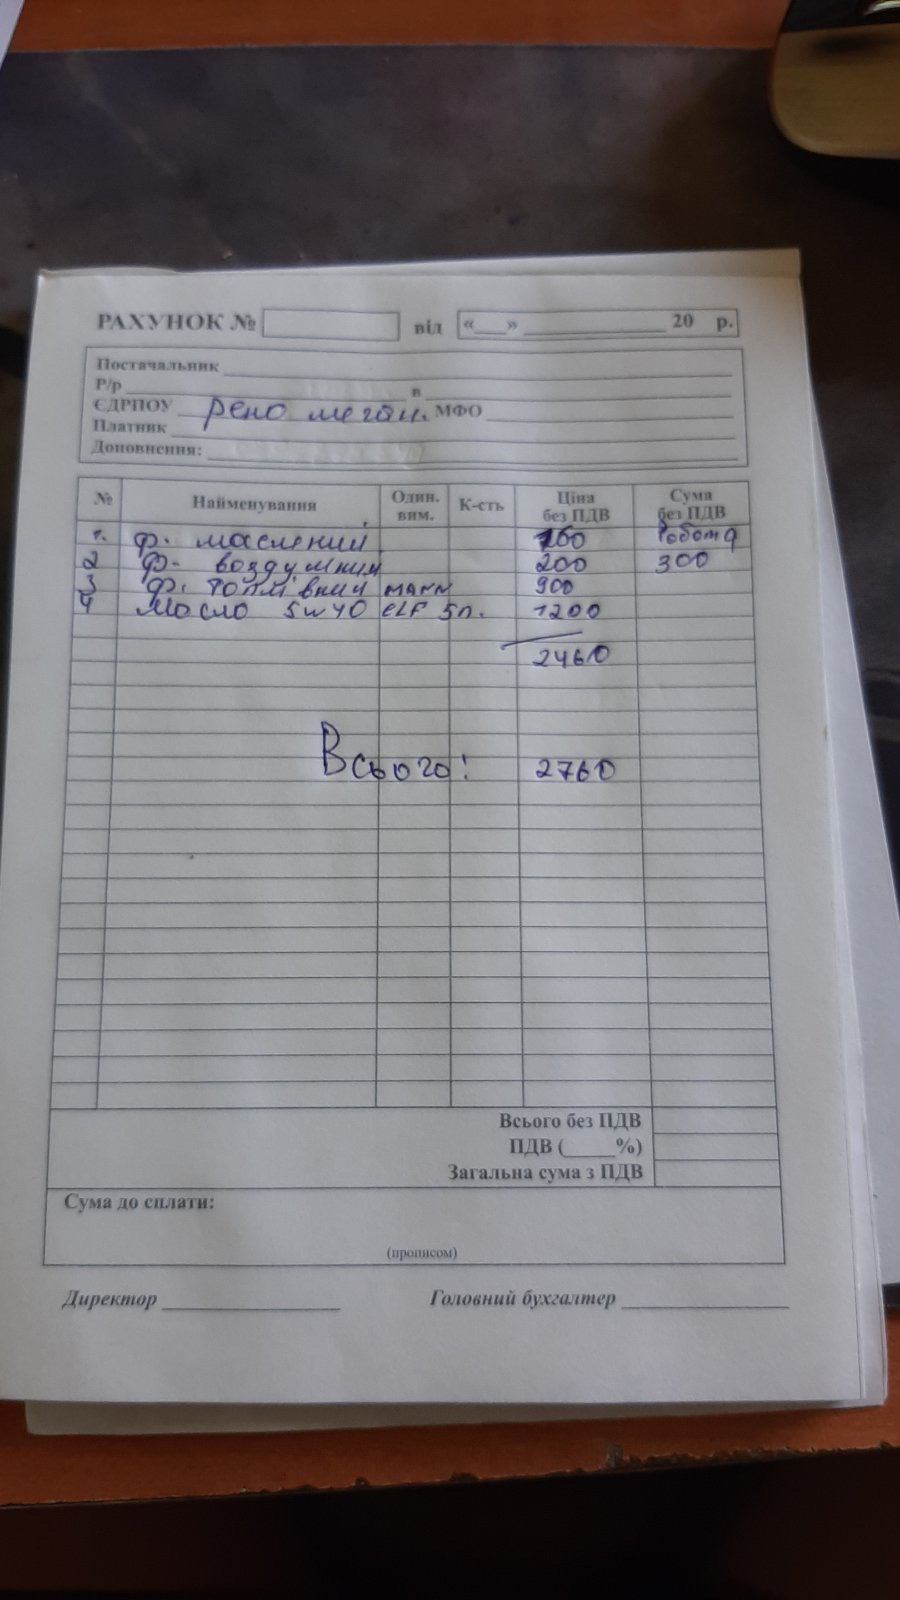 РАХУНОК № від «___» ____________ 20 р.
Постачальник
Р/р в
ЄДРПОУ рено меган. МФО
Платник
Доповнення:
№ Найменування Один. вим. К-сть Ціна без ПДВ Сума без ПДВ
1. ф. маслений 160 Робота
2 ф. воздушний 200 300
3 ф. топлівний MANN 900
4 Масло 5w40 ELF 5л. 1200
2460
Всього: 2760
Всього без ПДВ
ПДВ (____%)
Загальна сума з ПДВ
Сума до сплати:
(прописом)
Директор ____________ Головний бухгалтер ____________